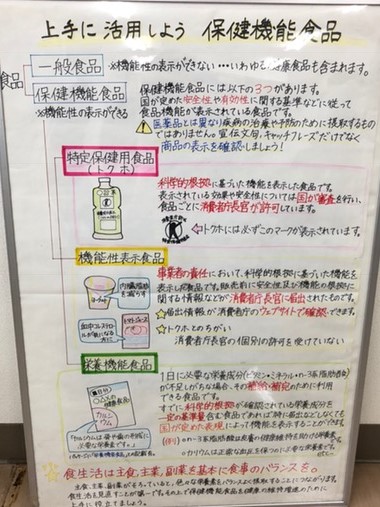 上手に活用しよう 保健機能食品
食品
一般食品 ※機能性の表示ができない…いわゆる健康食品も含まれます。
保健機能食品
※機能性の表示ができる
保健機能食品には以下の3つがあります。
国が定めた安全性や有効性に関する基準などに従って
食品の機能が表示されている食品です。
医薬品とは異なり疾病の治療や予防のために摂取するもの
ではありません。宣伝文句、キャッチフレーズだけでなく
商品の表示を確認しましょう!
特定保健用食品
(トクホ)
科学的根拠に基づいた機能を表示した食品です。
表示されている効果や安全性については国が審査を行い、
食品ごとに消費者庁長官が許可しています。
トクホには必ずこのマークが表示されています。
機能性表示食品
ヨーグルト
内臓脂肪を減らす
血中コレステロールが気になる方に
事業者の責任において、科学的根拠に基づいた機能を
表示した食品です。販売前に安全性及び機能性の根拠に
関する情報などが消費者庁長官に届出られたものです。
☆届出情報が消費者庁のウェブサイトで確認できます。
☆トクホとのちがい
消費者庁長官の個別の許可を受けていない
栄養機能食品
栄養機能食品
カルシウム
「カルシウムは骨や歯の形成に
必要な栄養素です。」
1日に必要な栄養成分(ビタミン・ミネラル・n-3系脂肪酸)
が不足しがちな場合、その補給・補完のために利用
できる食品です。
すでに科学的根拠が確認されている栄養成分を
一定の基準量含む食品であれば特に届出などしなくても
国が定めた表現によって機能を表示することができます。
(例) ◎n-3系脂肪酸は皮膚の健康維持を助ける栄養素です。
☆食生活は主食、主菜、副菜を基本に食事のバランスを。
主食、主菜、副菜がそろっていると、色々な栄養素をバランスよく摂取することにつながります。
上手に役立てましょう。